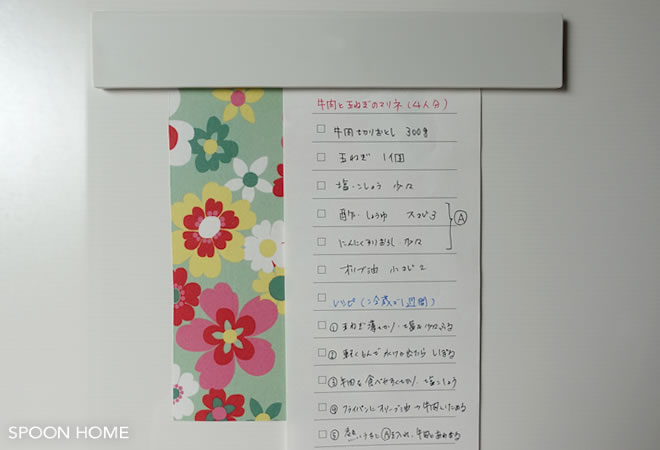 牛肉と玉ねぎのマリネ(4人分)
牛肉切りおとし 300g
玉ねぎ 1個
塩・こしょう 少々
酢・しょうゆ 大さじ3
にんにくすりおろし 少々
A
オリーブ油 小さじ2
レシピ(冷蔵で1週間)
① 玉ねぎ薄切り・塩を少々ふる
② 軽くもんで水けが出たらしぼる
③ 牛肉を食べやすく切り、塩こしょう
④ フライパンにオリーブ油→牛肉いためる
⑤ 熱いうちにⒶを入れ、牛肉とあわせる
SPOON HOME